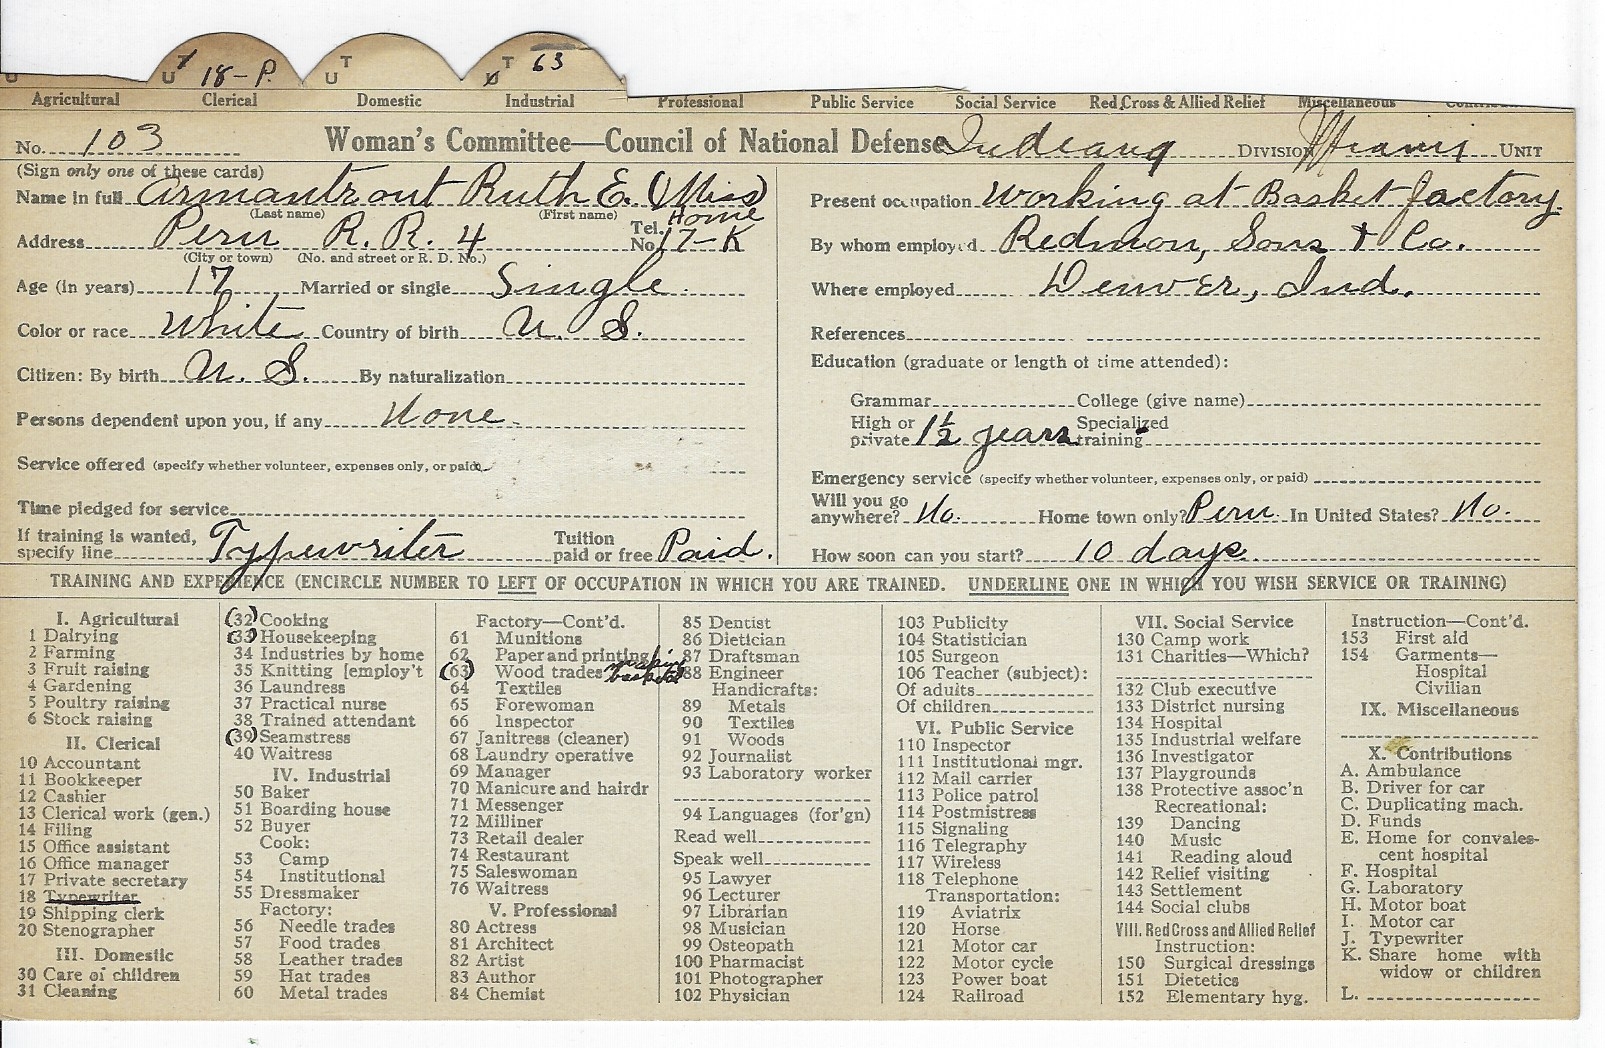 U T 18-P. U T U T 63
Agricultural Clerical Domestic Industrial Professional Public Service Social Service Red Cross & Allied Relief Miscellaneous
No. 103 Woman's Committee—Council of National Defense Indiana DIVISION Miami UNIT
(Sign only one of these cards)
Name in full Armantrout Ruth E. (Miss)
(Last name) (First name)
Address Peru R. R. 4 Tel. No. Home 17-K
(City or town) (No. and street or R. D. No.)
Age (in years) 17 Married or single Single.
Color or race White Country of birth U. S.
Citizen: By birth U. S. By naturalization
Persons dependent upon you, if any None.
Service offered (specify whether volunteer, expenses only, or paid)
Time pledged for service
If training is wanted, specify line Typewriter Tuition paid or free Paid.
Present occupation Working at Basket factory.
By whom employed Redmon, Sons & Co.
Where employed Denver, Ind.
References
Education (graduate or length of time attended):
Grammar College (give name)
High or private 1½ years Specialized training
Emergency service (specify whether volunteer, expenses only, or paid)
Will you go anywhere? No. Home town only? Peru In United States? No.
How soon can you start? 10 days.
TRAINING AND EXPERIENCE (ENCIRCLE NUMBER TO LEFT OF OCCUPATION IN WHICH YOU ARE TRAINED. UNDERLINE ONE IN WHICH YOU WISH SERVICE OR TRAINING)
I. Agricultural
1 Dairying
2 Farming
3 Fruit raising
4 Gardening
5 Poultry raising
6 Stock raising
II. Clerical
10 Accountant
11 Bookkeeper
12 Cashier
13 Clerical work (gen.)
14 Filing
15 Office assistant
16 Office manager
17 Private secretary
18 Typewriter
19 Shipping clerk
20 Stenographer
III. Domestic
30 Care of children
31 Cleaning
(32) Cooking
(33) Housekeeping
34 Industries by home
35 Knitting [employ't
36 Laundress
37 Practical nurse
38 Trained attendant
(39) Seamstress
40 Waitress
IV. Industrial
50 Baker
51 Boarding house
52 Buyer
Cook:
53 Camp
54 Institutional
55 Dressmaker
Factory:
56 Needle trades
57 Food trades
58 Leather trades
59 Hat trades
60 Metal trades
Factory—Cont'd.
61 Munitions
62 Paper and printing
(63) Wood trades making baskets
64 Textiles
65 Forewoman
66 Inspector
67 Janitress (cleaner)
68 Laundry operative
69 Manager
70 Manicure and hairdr
71 Messenger
72 Milliner
73 Retail dealer
74 Restaurant
75 Saleswoman
76 Waitress
V. Professional
80 Actress
81 Architect
82 Artist
83 Author
84 Chemist
85 Dentist
86 Dietician
87 Draftsman
88 Engineer
Handicrafts:
89 Metals
90 Textiles
91 Woods
92 Journalist
93 Laboratory worker
94 Languages (for'gn)
Read well
Speak well
95 Lawyer
96 Lecturer
97 Librarian
98 Musician
99 Osteopath
100 Pharmacist
101 Photographer
102 Physician
103 Publicity
104 Statistician
105 Surgeon
106 Teacher (subject):
Of adults
Of children
VI. Public Service
110 Inspector
111 Institutional mgr.
112 Mail carrier
113 Police patrol
114 Postmistress
115 Signaling
116 Telegraphy
117 Wireless
118 Telephone
Transportation:
119 Aviatrix
120 Horse
121 Motor car
122 Motor cycle
123 Power boat
124 Railroad
VII. Social Service
130 Camp work
131 Charities—Which?
132 Club executive
133 District nursing
134 Hospital
135 Industrial welfare
136 Investigator
137 Playgrounds
138 Protective assoc'n
Recreational:
139 Dancing
140 Music
141 Reading aloud
142 Relief visiting
143 Settlement
144 Social clubs
VIII. Red Cross and Allied Relief
Instruction:
150 Surgical dressings
151 Dietetics
152 Elementary hyg.
Instruction—Cont'd.
153 First aid
154 Garments—
Hospital
Civilian
IX. Miscellaneous
X. Contributions
A. Ambulance
B. Driver for car
C. Duplicating mach.
D. Funds
E. Home for convales-
cent hospital
F. Hospital
G. Laboratory
H. Motor boat
I. Motor car
J. Typewriter
K. Share home with
widow or children
L.